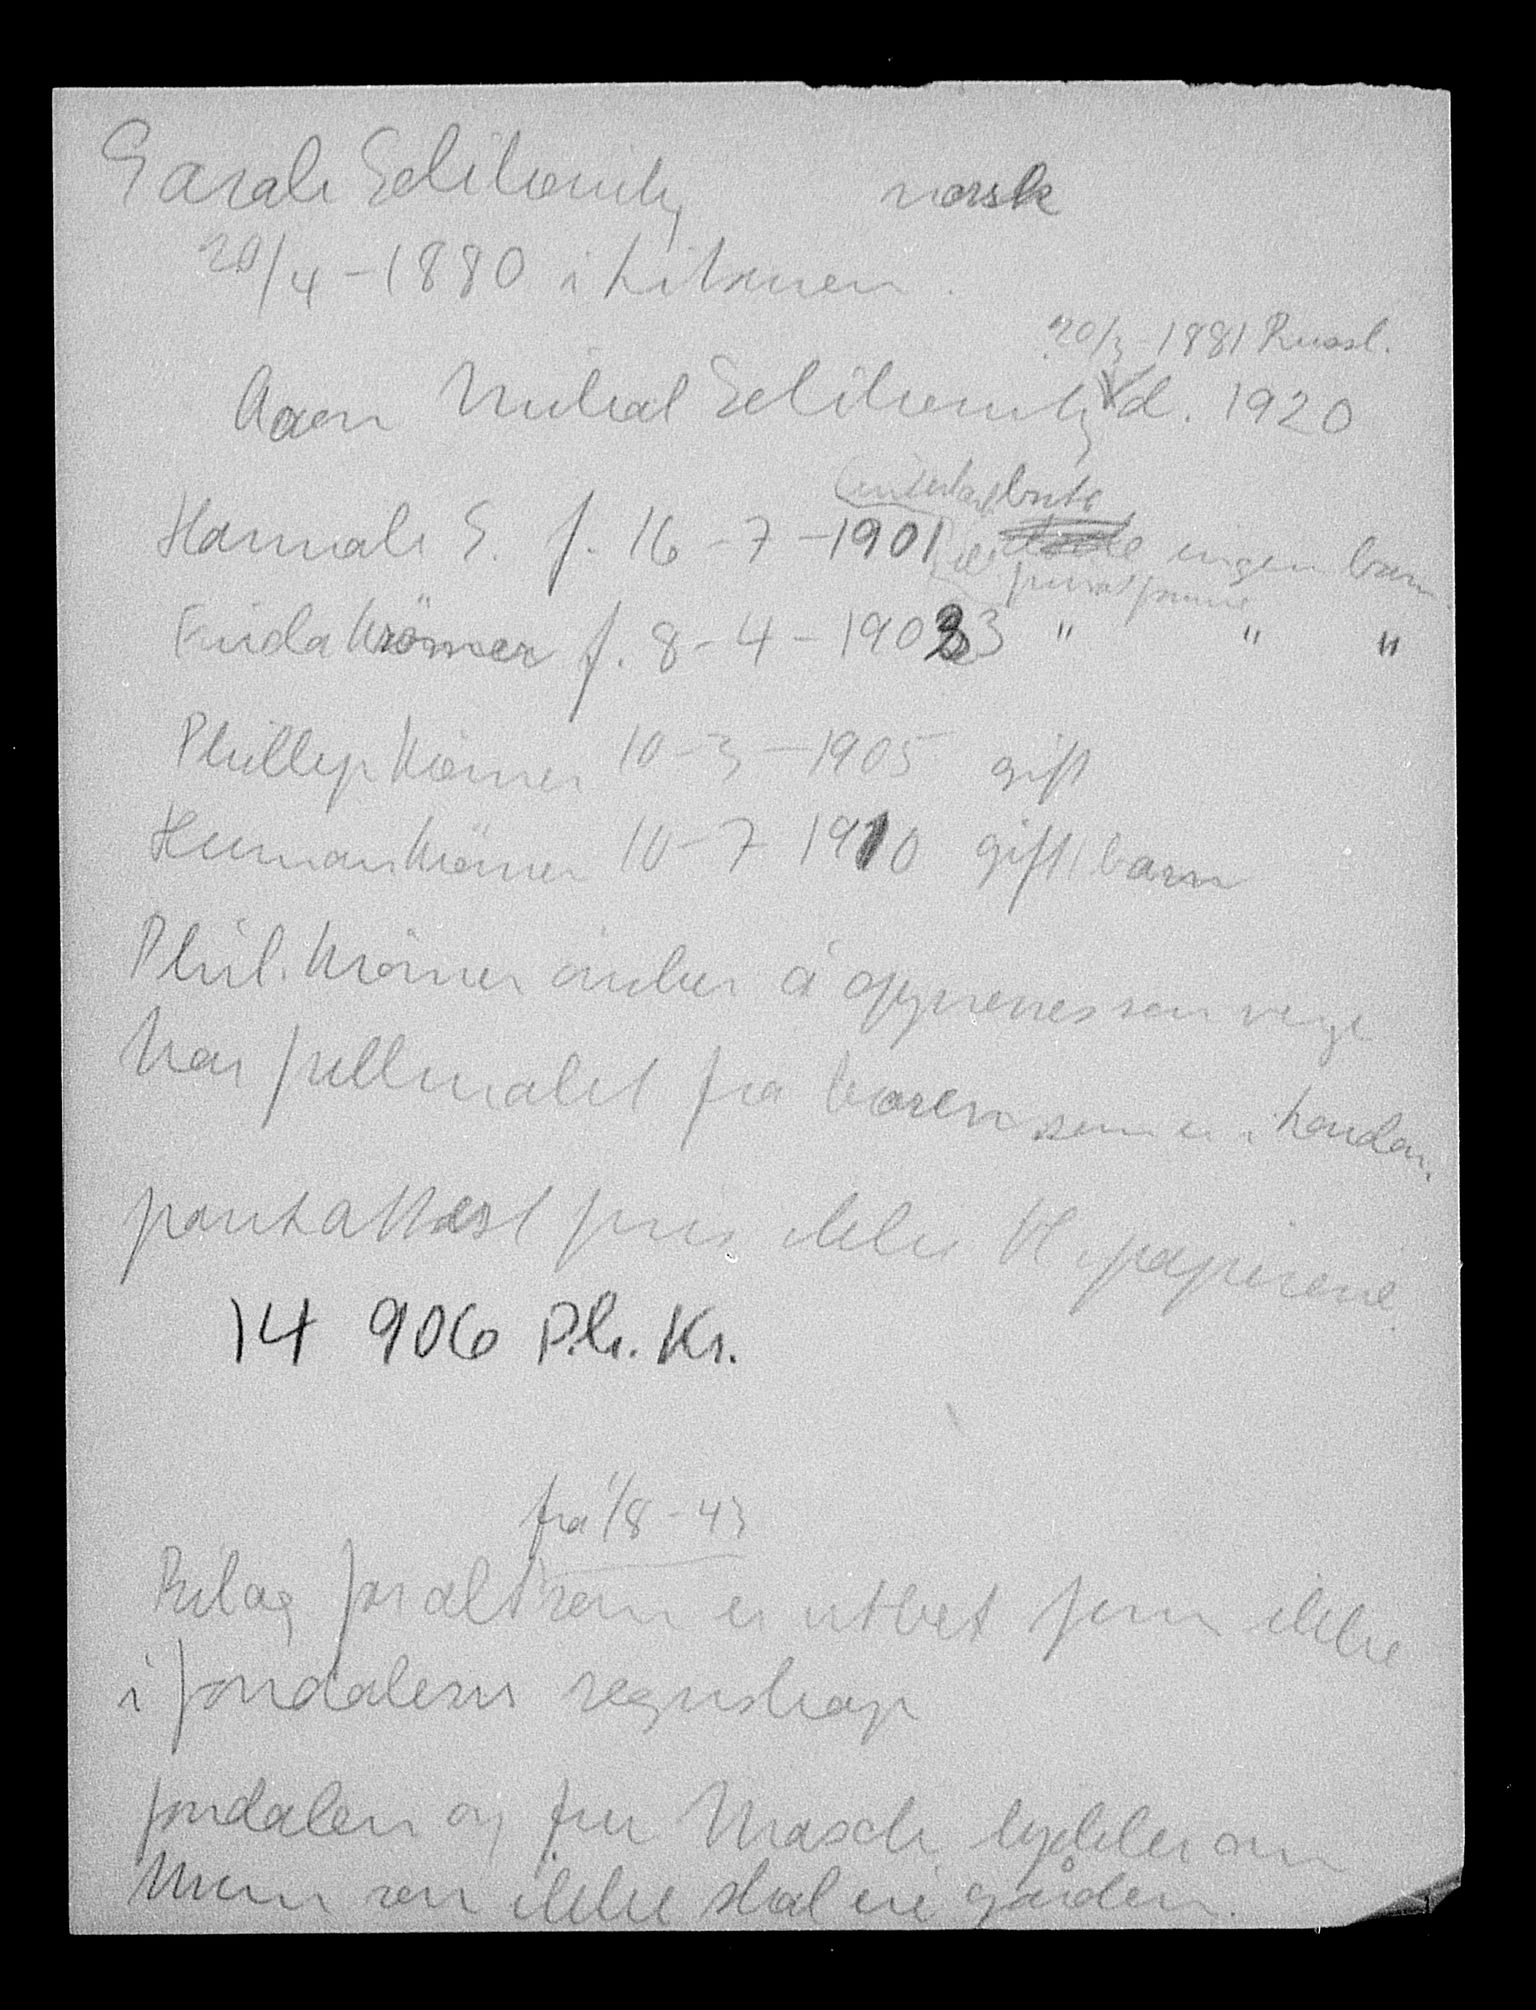 Sarah Selikowitz norsk
20/4 - 1880 i Litauen.
20/3 - 1881 Russl.
Aaon Mikal Selikowitz d. 1920
Hannah S. f. 16 - 7 - 1901 ingen barn
Frida Krömer f. 8 - 4 - 1903 " " "
Phillip Krömer 10 - 3 - 1905 gift
Herman Krömer 10 - 7 1910 gift 1 barn
Phil. Krömer önsker å oppnevnes som verge
har fullmakt fra som er i London,
pantattest fins ikke bl. papirene
14 906 Pr. Kr.
fra 1/8 - 43
Bilag for alt som er utbet finn ikke
i Jondalens regnskap
Jondalen og fru lykkes om
som ikke skal eie gården.